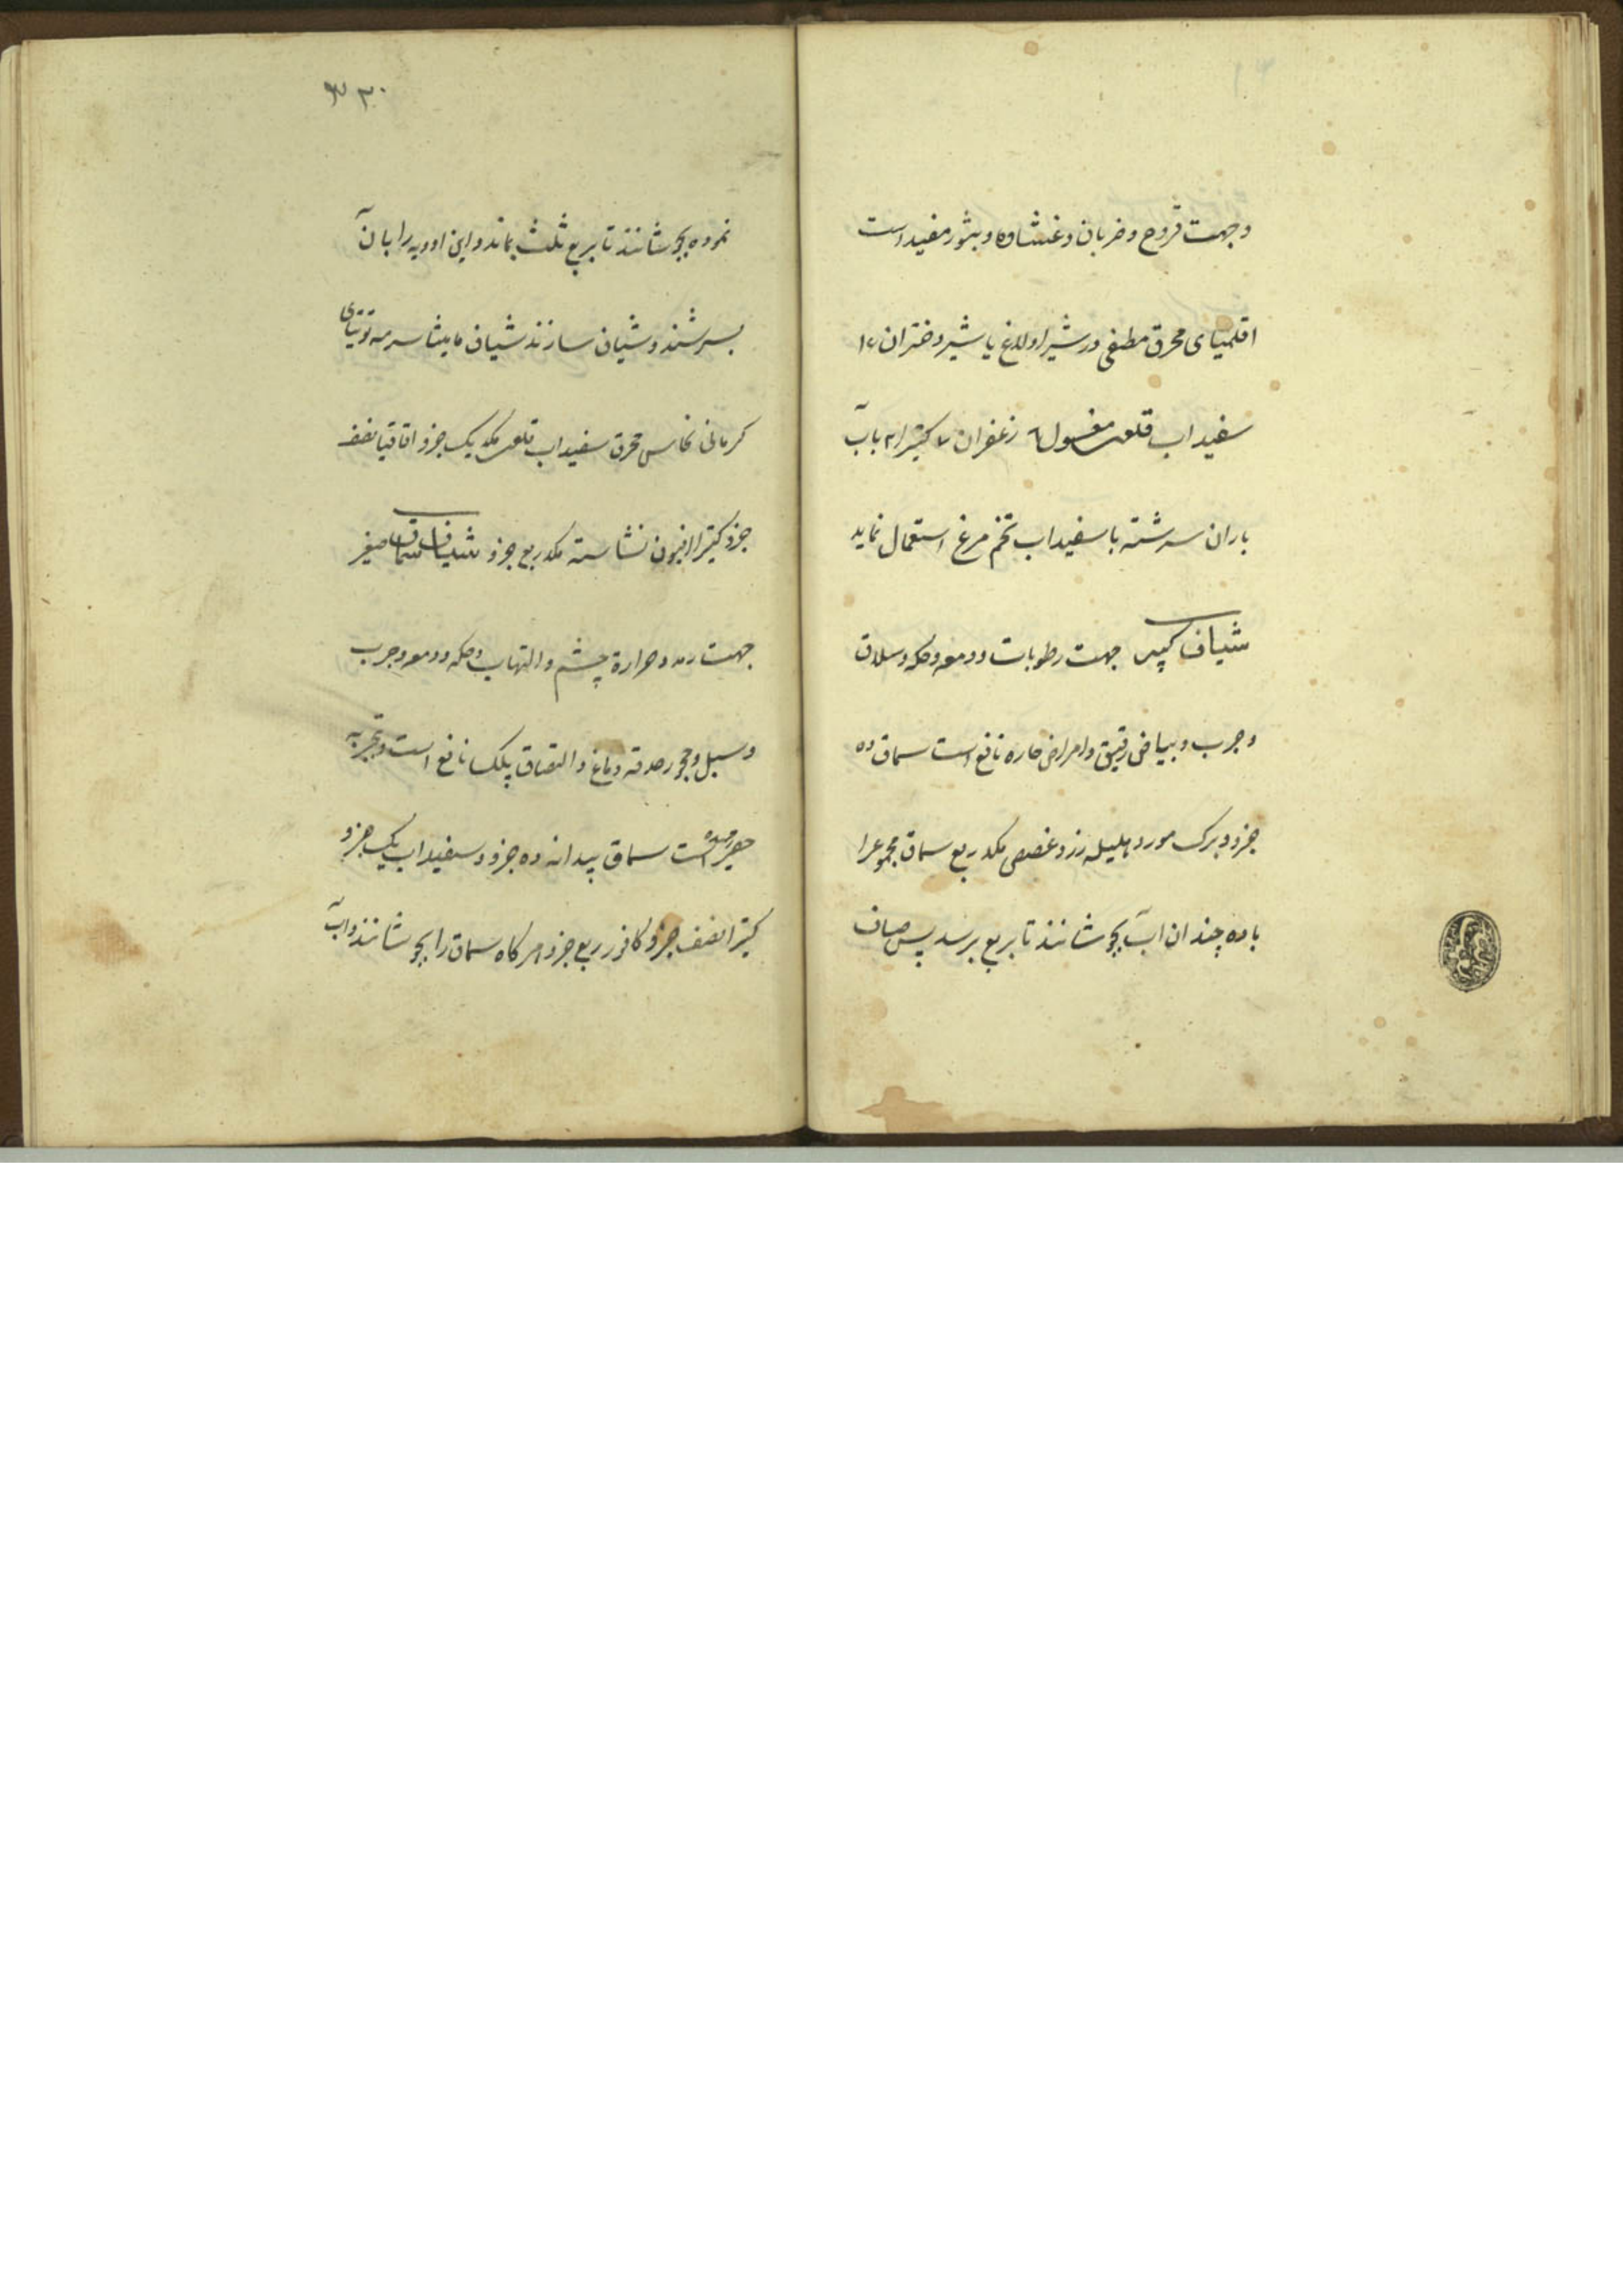 وجهت قروح وضربان وغشاوه وبثور مفید است
اقلیمیای محرق مطفی در شیر اولاغ یا شیر دختران ۱۶
سفیداب قلعی مغسول ۶ زعفران ۷ کتیرا ۲ بآب
باران سرشته با سفیداب تخم مرغ استعمال نماید
شیاف کبیر جهت رطوبات ودمعه وحکه وسلاق
وجرب وبیاض رقیق وامراض حاره نافع است سماق ده
جزو وبرک مورد هلیله زرد غصص مکد ربع سماق مجموعرا
با ده چندان اب بجوشانند تا بربع برسد پس صاف
۳۰
نموده بجوشانند تا بربع ثلث بماند واین ادویه را بآن
بسرشند وشیاف سازند شیاف مامیثا سرمه توتیای
کرمانی نحاس محرق سفیداب قلعی مکد یک جزو اقاقیا نصف
جزو کتیرا افیون نشاسته مکد ربع جزو شیاف سماق صغیر
جهت رمد وحرارة چشم والتهاب وحکه ودمعه وجرب
وسبل وجحوز حدقه ودماغ والتصاق پلک نافع است وتجربه
حقیر رسیده است سماق بیدانه ده جزو وسفیداب یک جزو
کتیرا نصف جزو کافور ربع جزو هرکاه سماق را بجوشانند واب